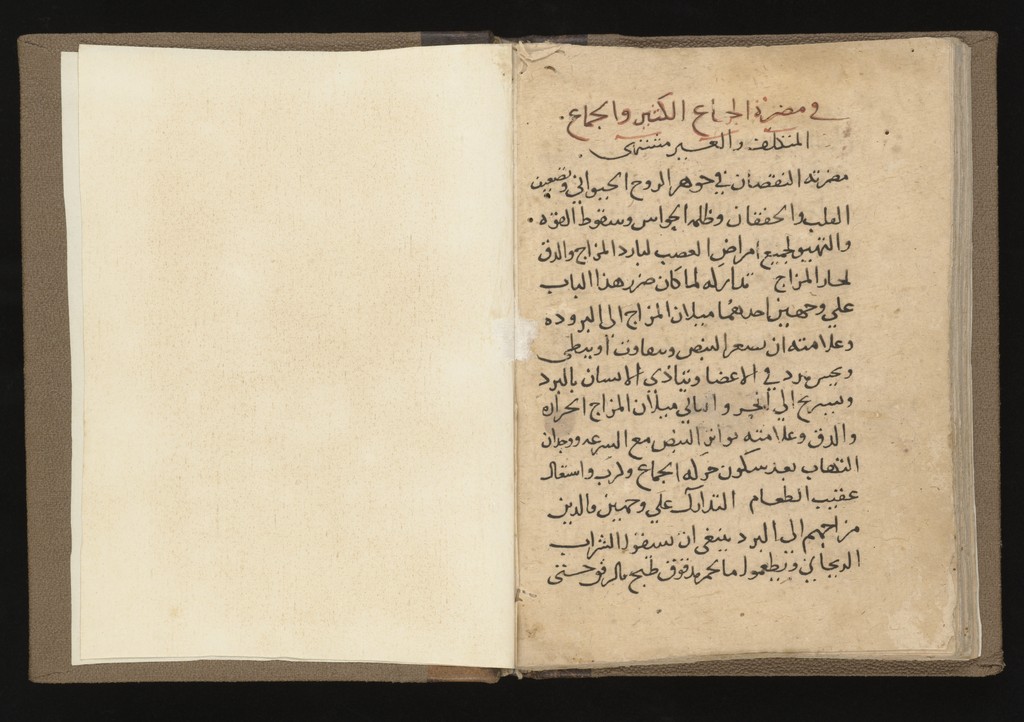 في مضرة الجماع الكثير والجماع
المتكلف والغير مشتهى
مضرته النقصان في جوهر الروح الحيواني وتضعيف
القلب والخفقان وظلمه الحواس وسقوط القوه
والتهييج لجميع امراض العصب لبارد المزاج والدق
لحار المزاج تداركه لما كان ضرر هذا الباب
علي وجهين احدهما ميلان المزاج الي البروده
وعلامته ان يصغر النبض ويتفاوت او يبطي
ويحس ببرد في الاعضا ويتاذي الانسان بالبرد
ويستريح الي الحر والثاني ميلان المزاج الحراره
والدق وعلامته تواتر النبض مع السرعه ووجدان
التهاب بعد سكون حركه الجماع وكرب واشتعال
عقيب الطعام التدارك علي وجهين والدين
مزاجهم الي البرد ينبغي ان يسقوا الشراب
الريحاني ويطعموا ما لحم مدقوق طبخ بالرفق حتي